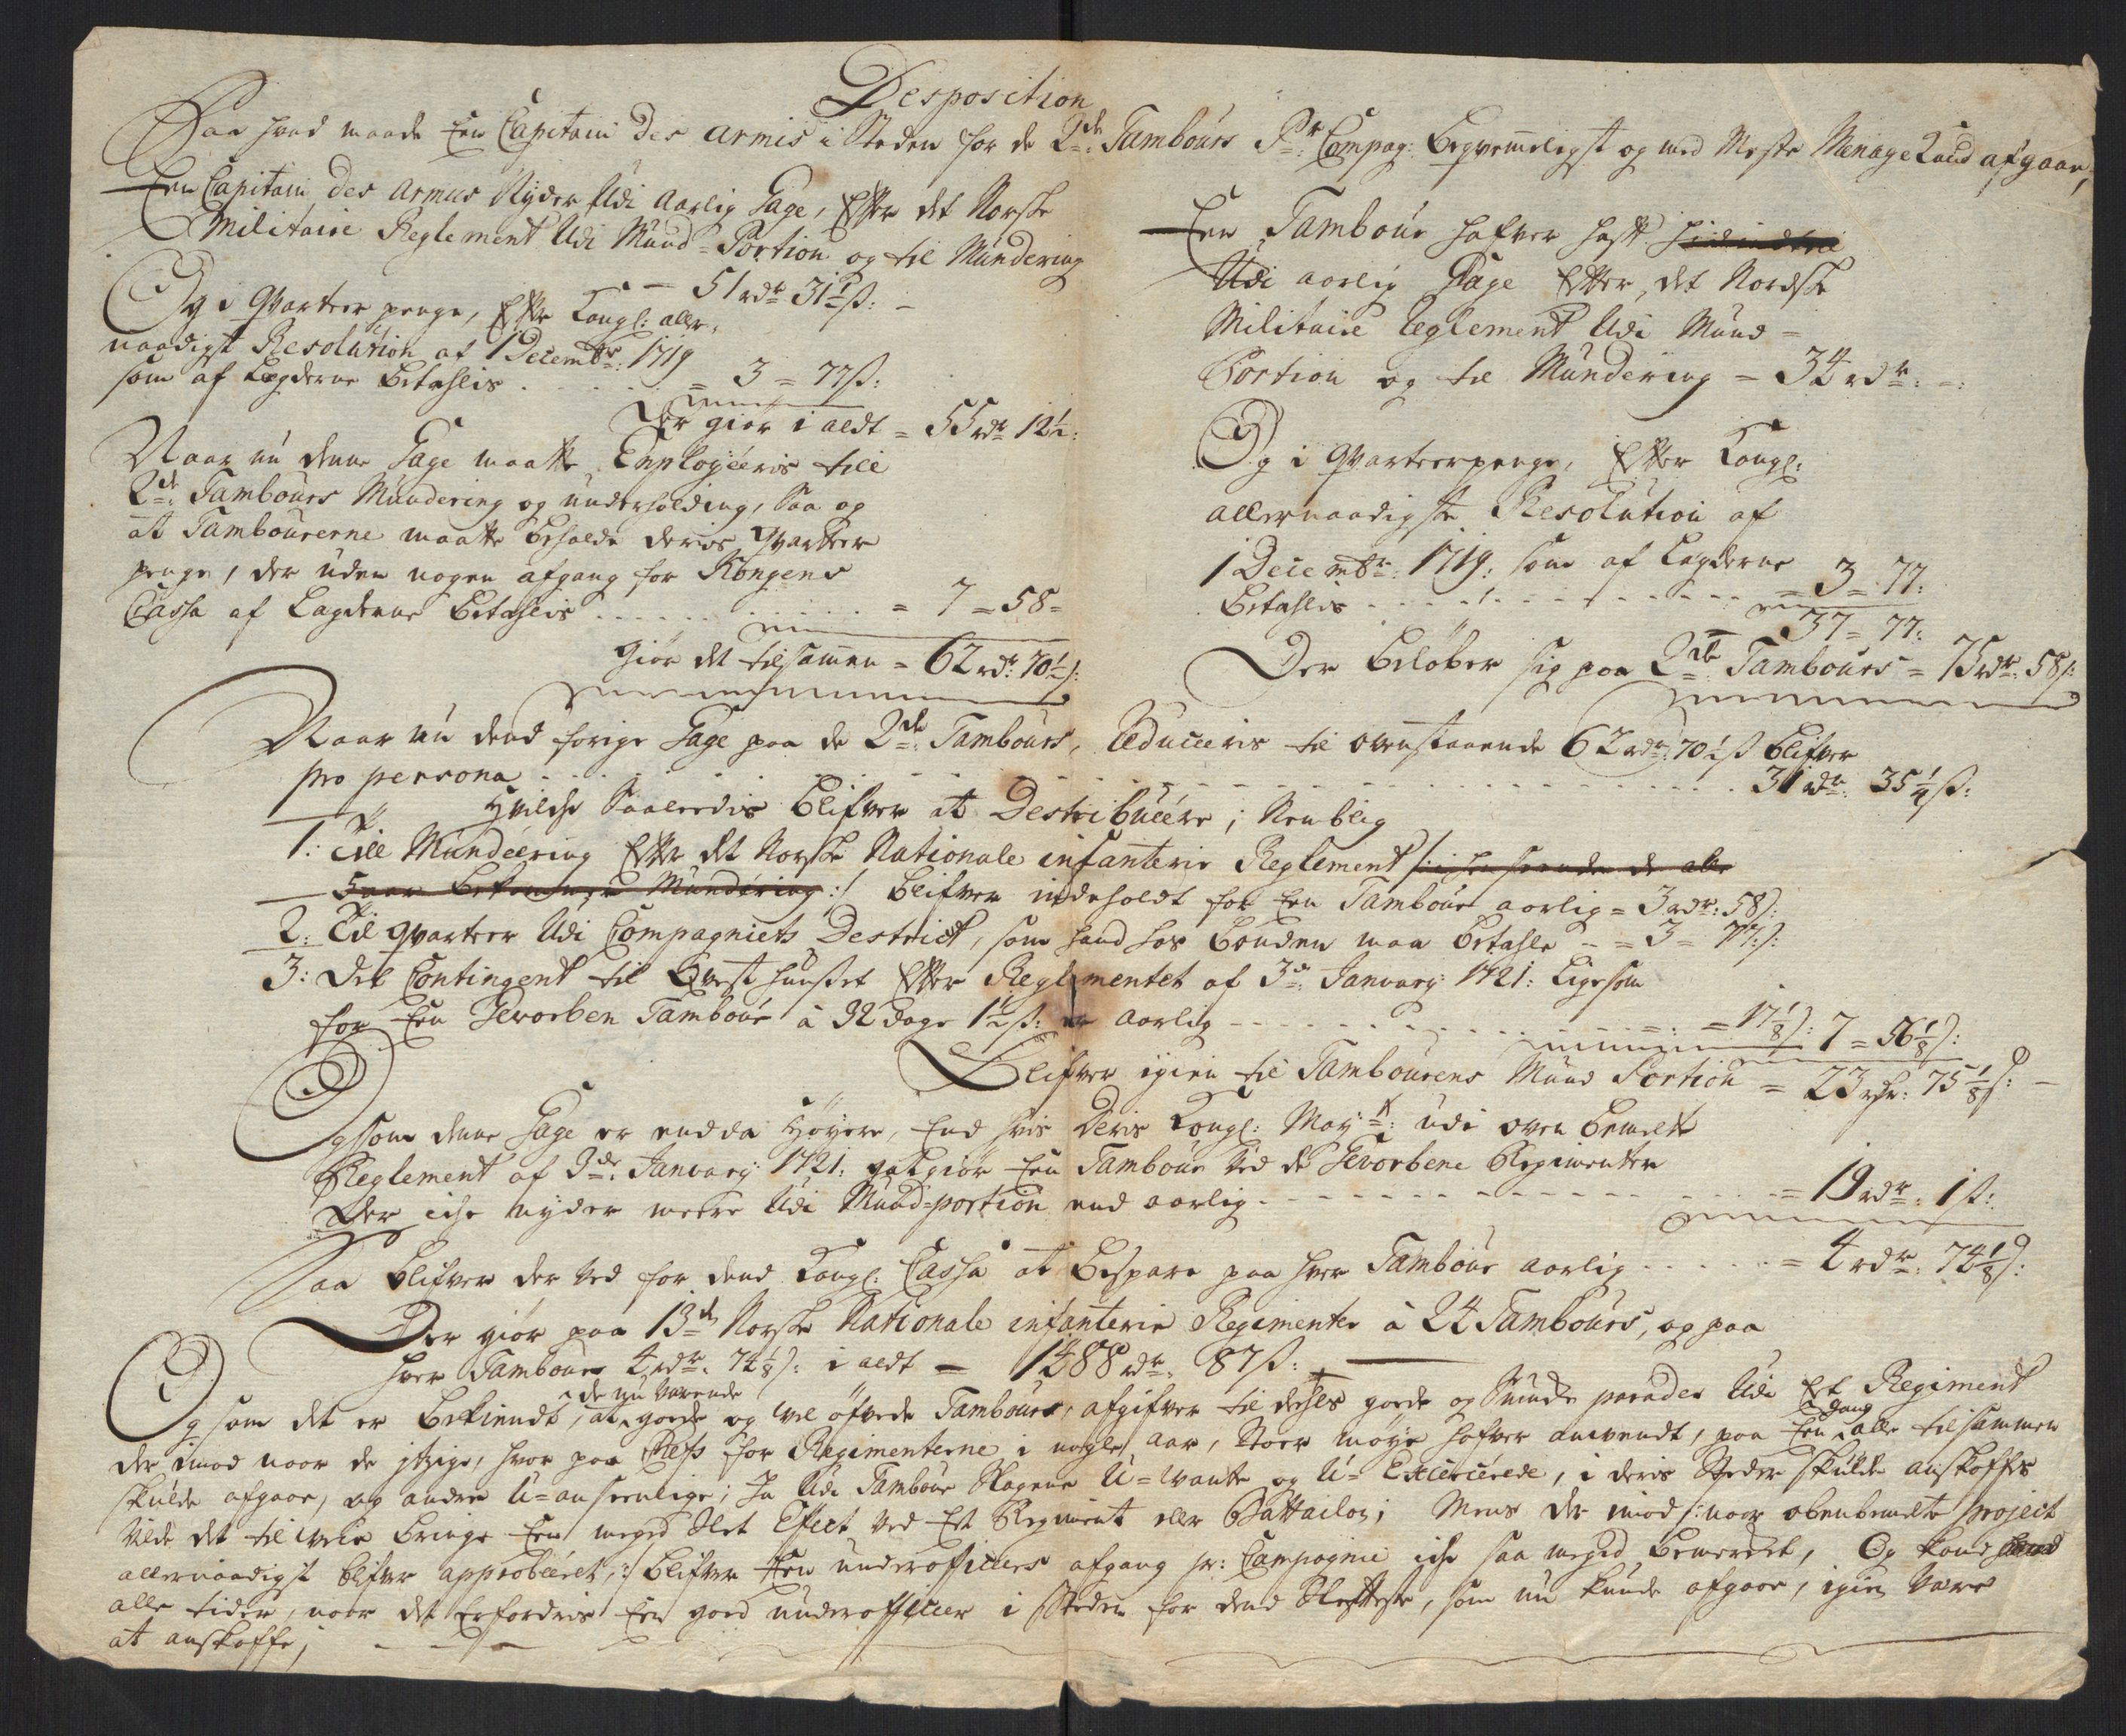 Desposition
Paa hvad maade Een Capitain des armis i Steden for de 2de Tambours Pr Compag: beqvemmeligst og med Meste Menage Kand afgaae,
Een Capitain des Armus Nyder Udi Aarlig Gage, Efter det Norske
Militaire Reglement Udi Mund-Portion og til Mundering
— 51 rdr 31½ ß: —
Og i Qvarteer penge, Efter Kongl: aller-
naadigst Resolution af 1 Decembr: 1719
som af Lægderne betahlis . . . . . = 3 = 77 ß:
Der giør i aldt = 55 rdr 12½:
Naar nu denne Gage maatte Enployéeris till
2de Tambours Mundering og underholding, Saa og
at Tambourerne maatte beholde deris Qvarteer
penge, der uden nogen afgang for Kongens
Cassa af Lægderne betahlis . . . . . . = 7 = 58 =
giør det tilsammen = 62 rdr: 70½ ß:
Een Tambour hafver haft hid indtil
Udi aarlig Gage Efter det Nordske
Militaire Reglement Udi Mund-
Portion og til Mundering = 34 rdr: =:
Og i Qvarteerpenge, Efter Kongl:
allernaadigste Resolution af
1 Decembr: 1719: som af Lægderne
betahlis . . . . . . = 3 = 77:
37 = 77:
Der beløber sig paa 2de Tambours = 75 rdr: 58 ß:
Naar nu dend forige Gage paa de 2de Tambours, Reduceeris til ovenstaaende 62 rdr: 70½ ß blifver
pro persona . . . . . . 31 rdr: 35¼ ß:
Hvilche Saaleedis blifver at Destribuéere; Nemblig
1: Till Mundéering Efter det Norske Nationale infanterie Reglement /: i henseende de alle
Faar Mundéring :/ blifver indeholdt for Een Tambour aarlig = 3 rdr: 58 ß:
2: Til qvarteer Udi Compagniets Destrict, som hand hos bonden maa betahle - = 3 = 77: ß:
3: Det Contingent til Qvesthuuset Efter Reglementet af 3de January 1721: Ligesom
for Een Gevorben Tambour à 32 dage 1½ ß: er aarlig . . . . . . = 17⅛ ß: 7 = 56⅛ ß:
Blifver igien til Tambourens Mund Portion = 23 rdr: 75⅛ ß: —
Og som denne Gage er endda Høyere, End hvis Deris Kongl: May:tt: udi oven bemelte
Reglement af 3de January 1721: gotgiør Een Tambour Ved de Gevorbene Regimenter
Der iche nyder meere Udi Mund-portion end aarlig . . . . . . = 19 rdr: 1 ß:
Saa blifver der Ved for dend Kongl: Cassa at bespare paa hver Tambour aarlig . . . . . = 4 rdr: 74⅛ ß:
Der giør paa 13de Norske Nationale infanterie Regimenter à 24 Tambours, og paa
hver Tambour 4 rdr: 74⅛ ß: i aldt = 1488 rdr: 87 ß:
Og som det er bekiendt, at de nu værende goede og vel øfvede Tambours, afgifver til deeles goede og Smucke parader Udi Et Regiment
der imod naar de itzige, hvor paa Chefs for Regimenterne i nogle aar, stoer møye hafver anvendt, paa Een gang alle tilsammen
skulde afgaae, og andre U-anseenlige; Ja Udi Tambour Slagene U-vante og U-Exercérede, i deris Steder skulde anskaffes
Vilde det til veie bringe Een meged Slet Effect Ved Et Regiment eller Battailon; Mens der imod /: naar ovenbemelte project
allernaadigst blifver approbéeret, :/ blifver Een underofficeers afgang pr: Compagnie iche saa meged bemerckt, Og kand
alle tider, naar det Erfordris Een goed underofficeer i Steden for dend Sletteste, som nu kunde afgaae, igien være
at anskaffe;